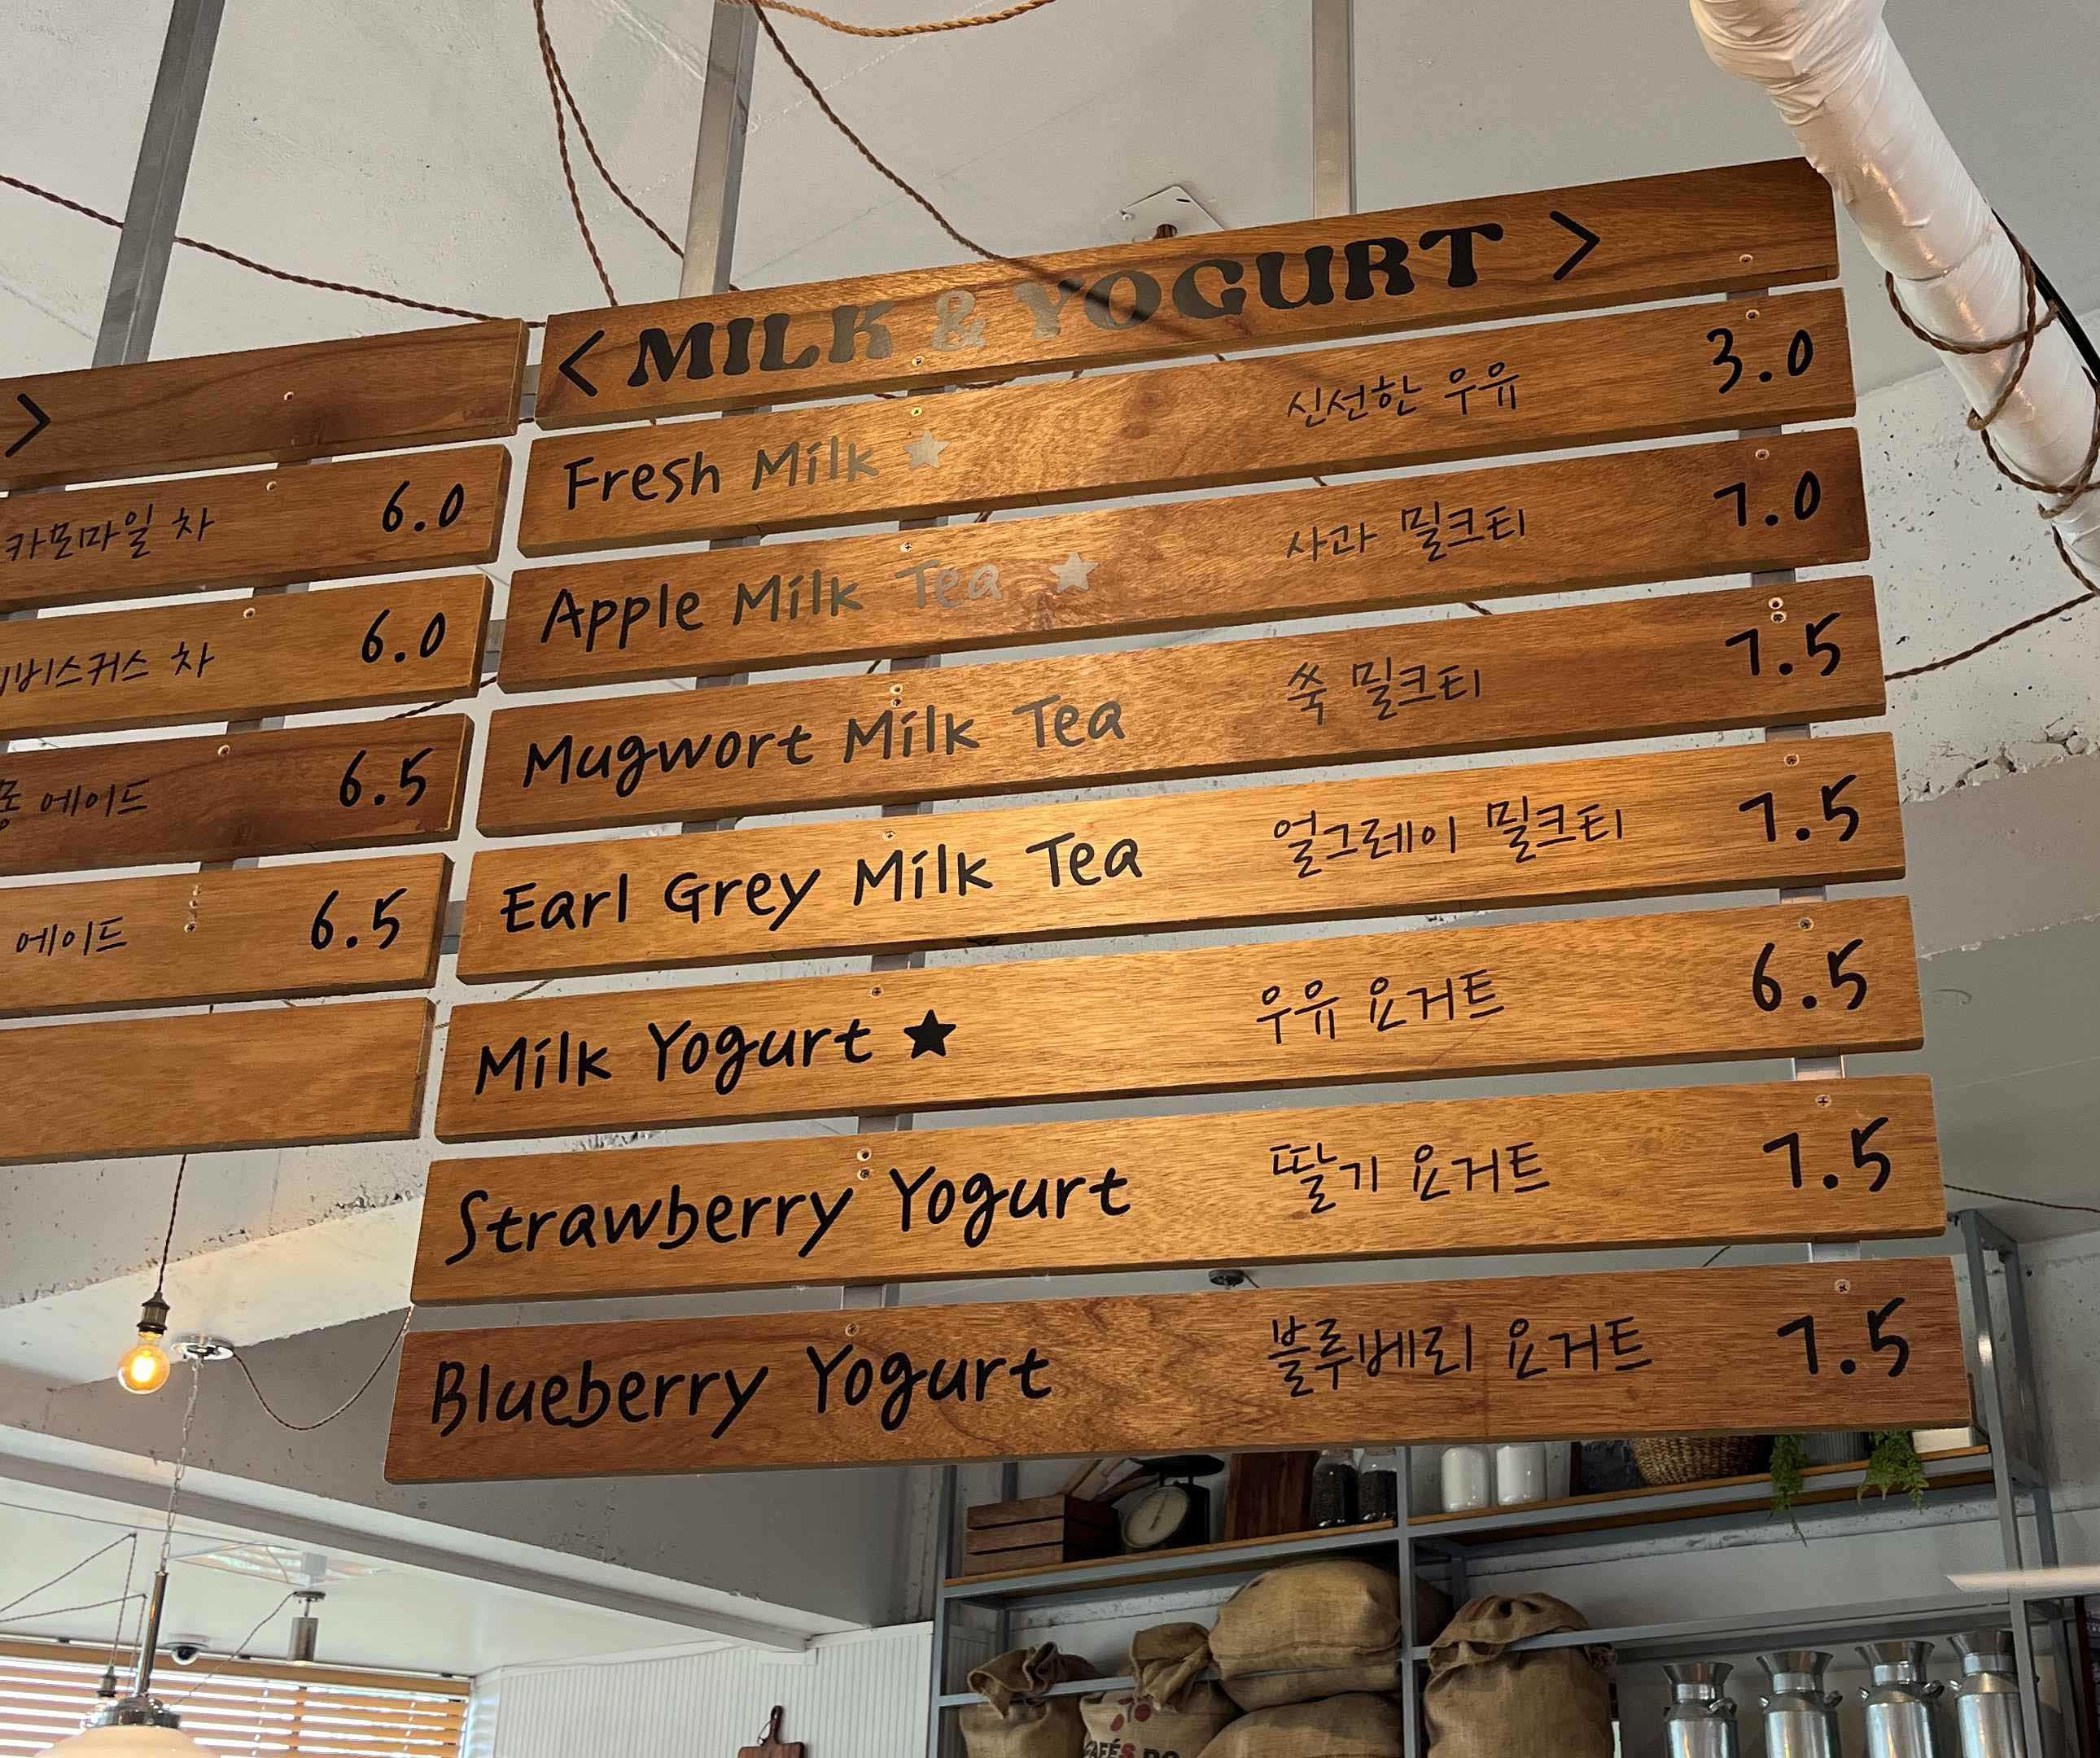 >
카모마일 차 6.0
비스커스 차 6.0
에이드 6.5
에이드 6.5
< MILK & YOGURT >
Fresh Milk ★ 신선한 우유 3.0
Apple Milk Tea ★ 사과 밀크티 7.0
Mugwort Milk Tea 쑥 밀크티 7.5
Earl Grey Milk Tea 얼그레이 밀크티 7.5
Milk Yogurt ★ 우유 요거트 6.5
Strawberry Yogurt 딸기 요거트 7.5
Blueberry Yogurt 블루베리 요거트 7.5